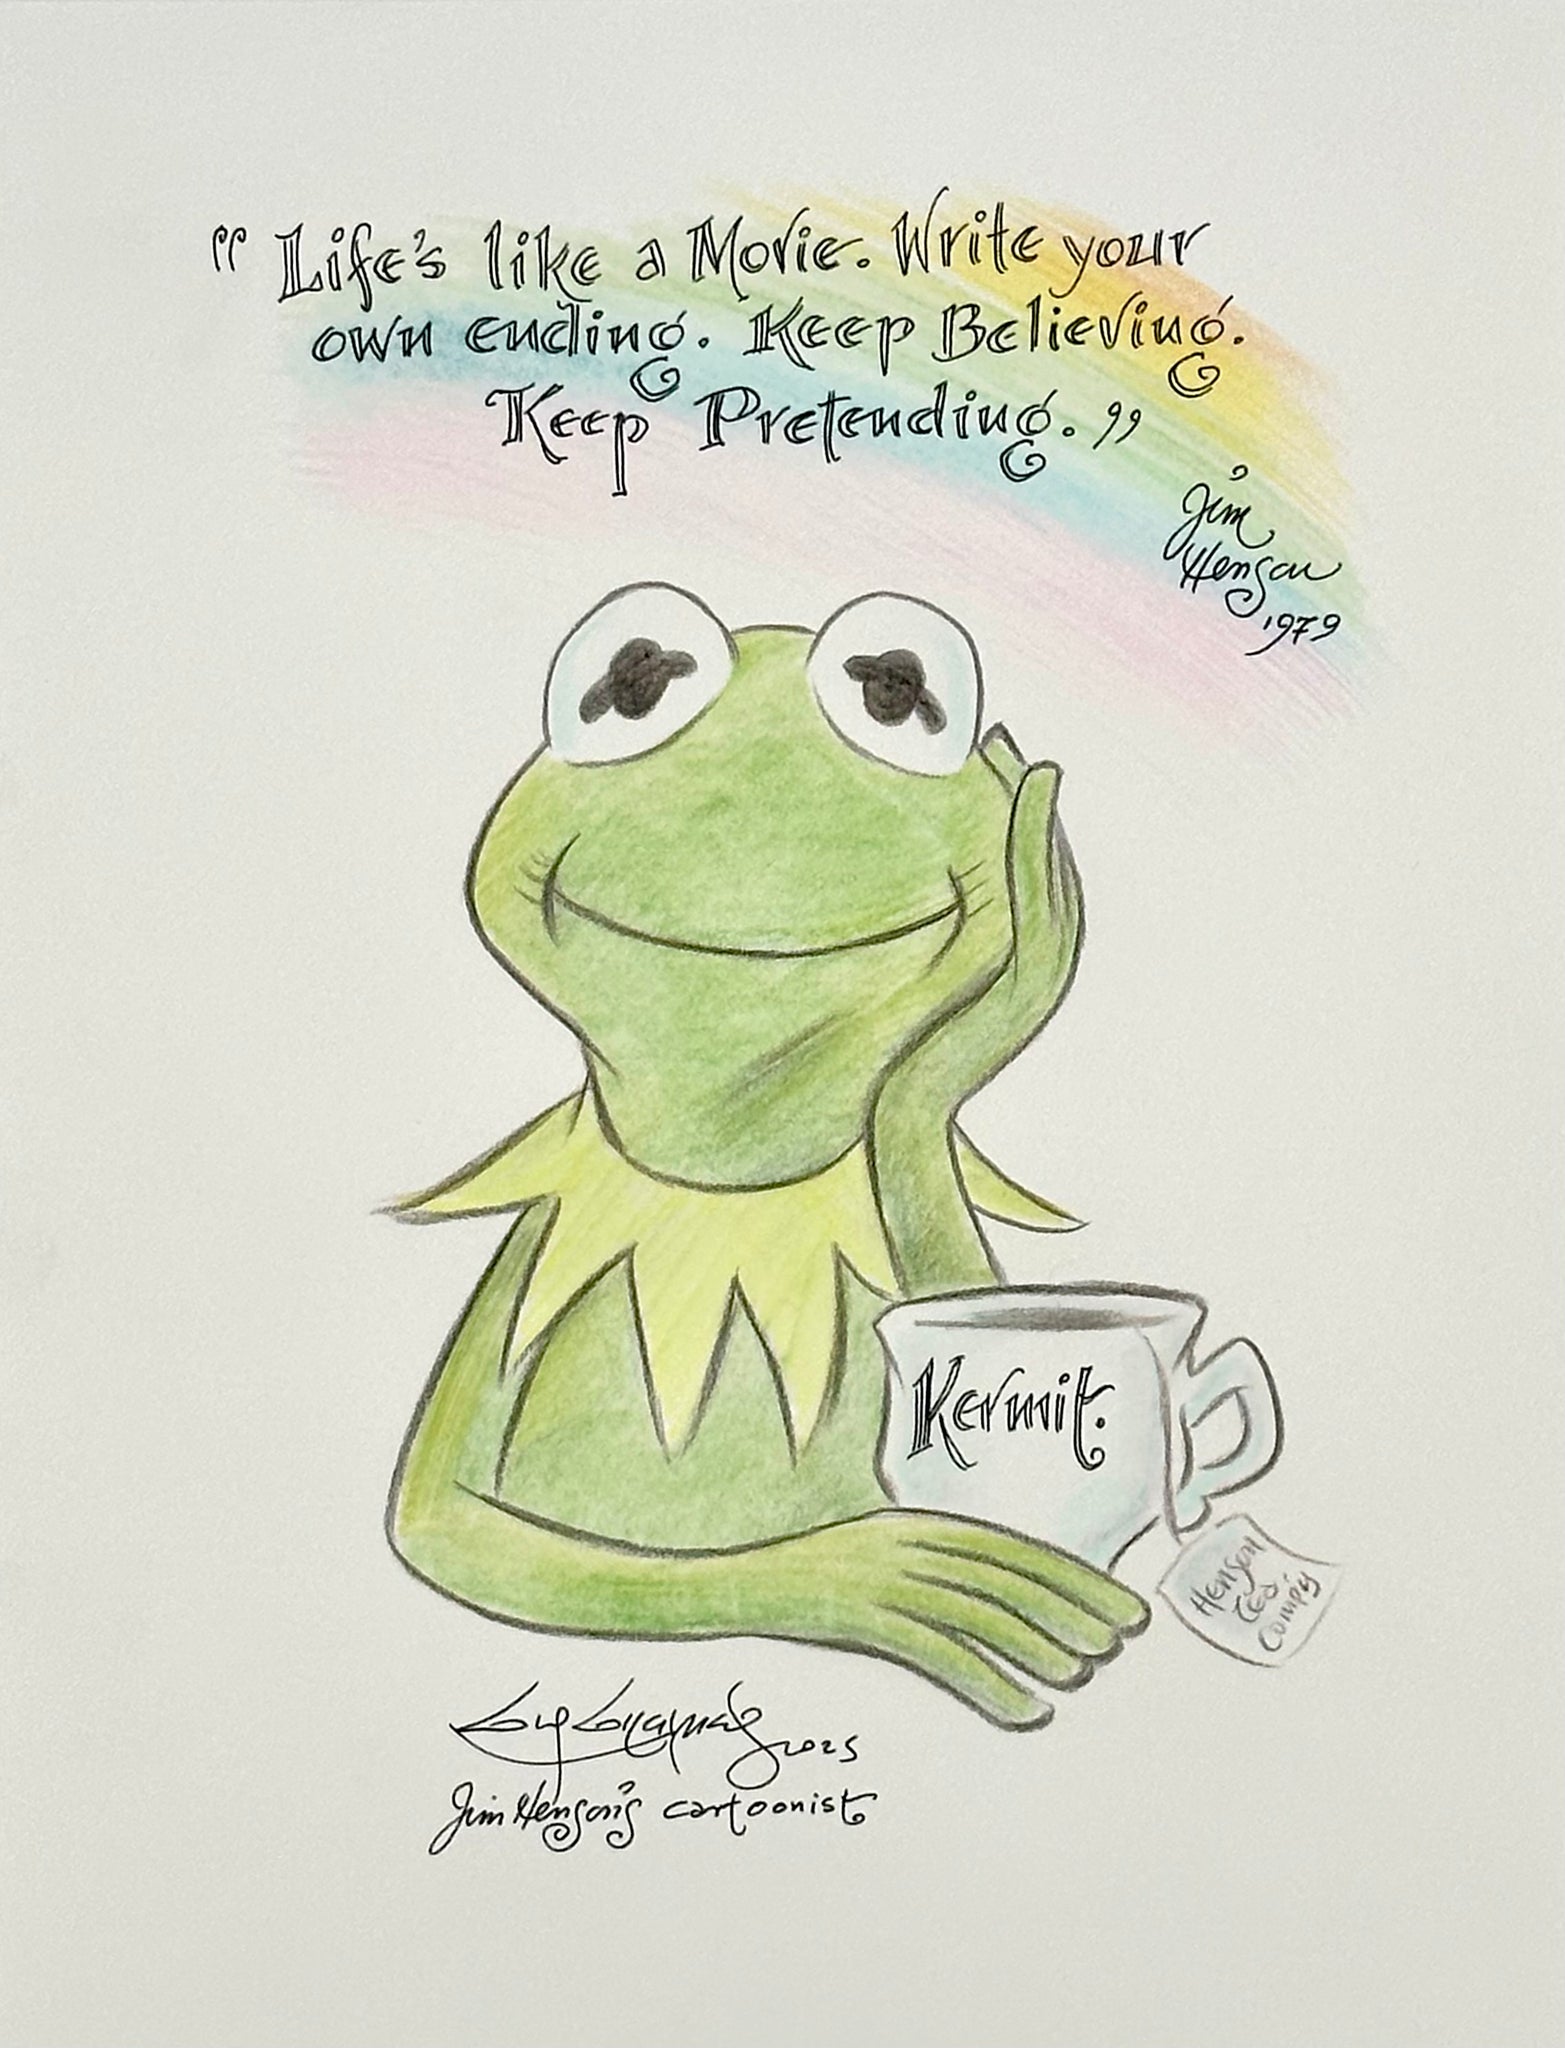 "Life's like a Movie. Write your
own ending. Keep Believing.
Keep Pretending."
Jim
Henson
1979
Kermit.
Henson
Tea
Comp'y
Guy Gilchrist 2025
Jim Henson's cartoonist